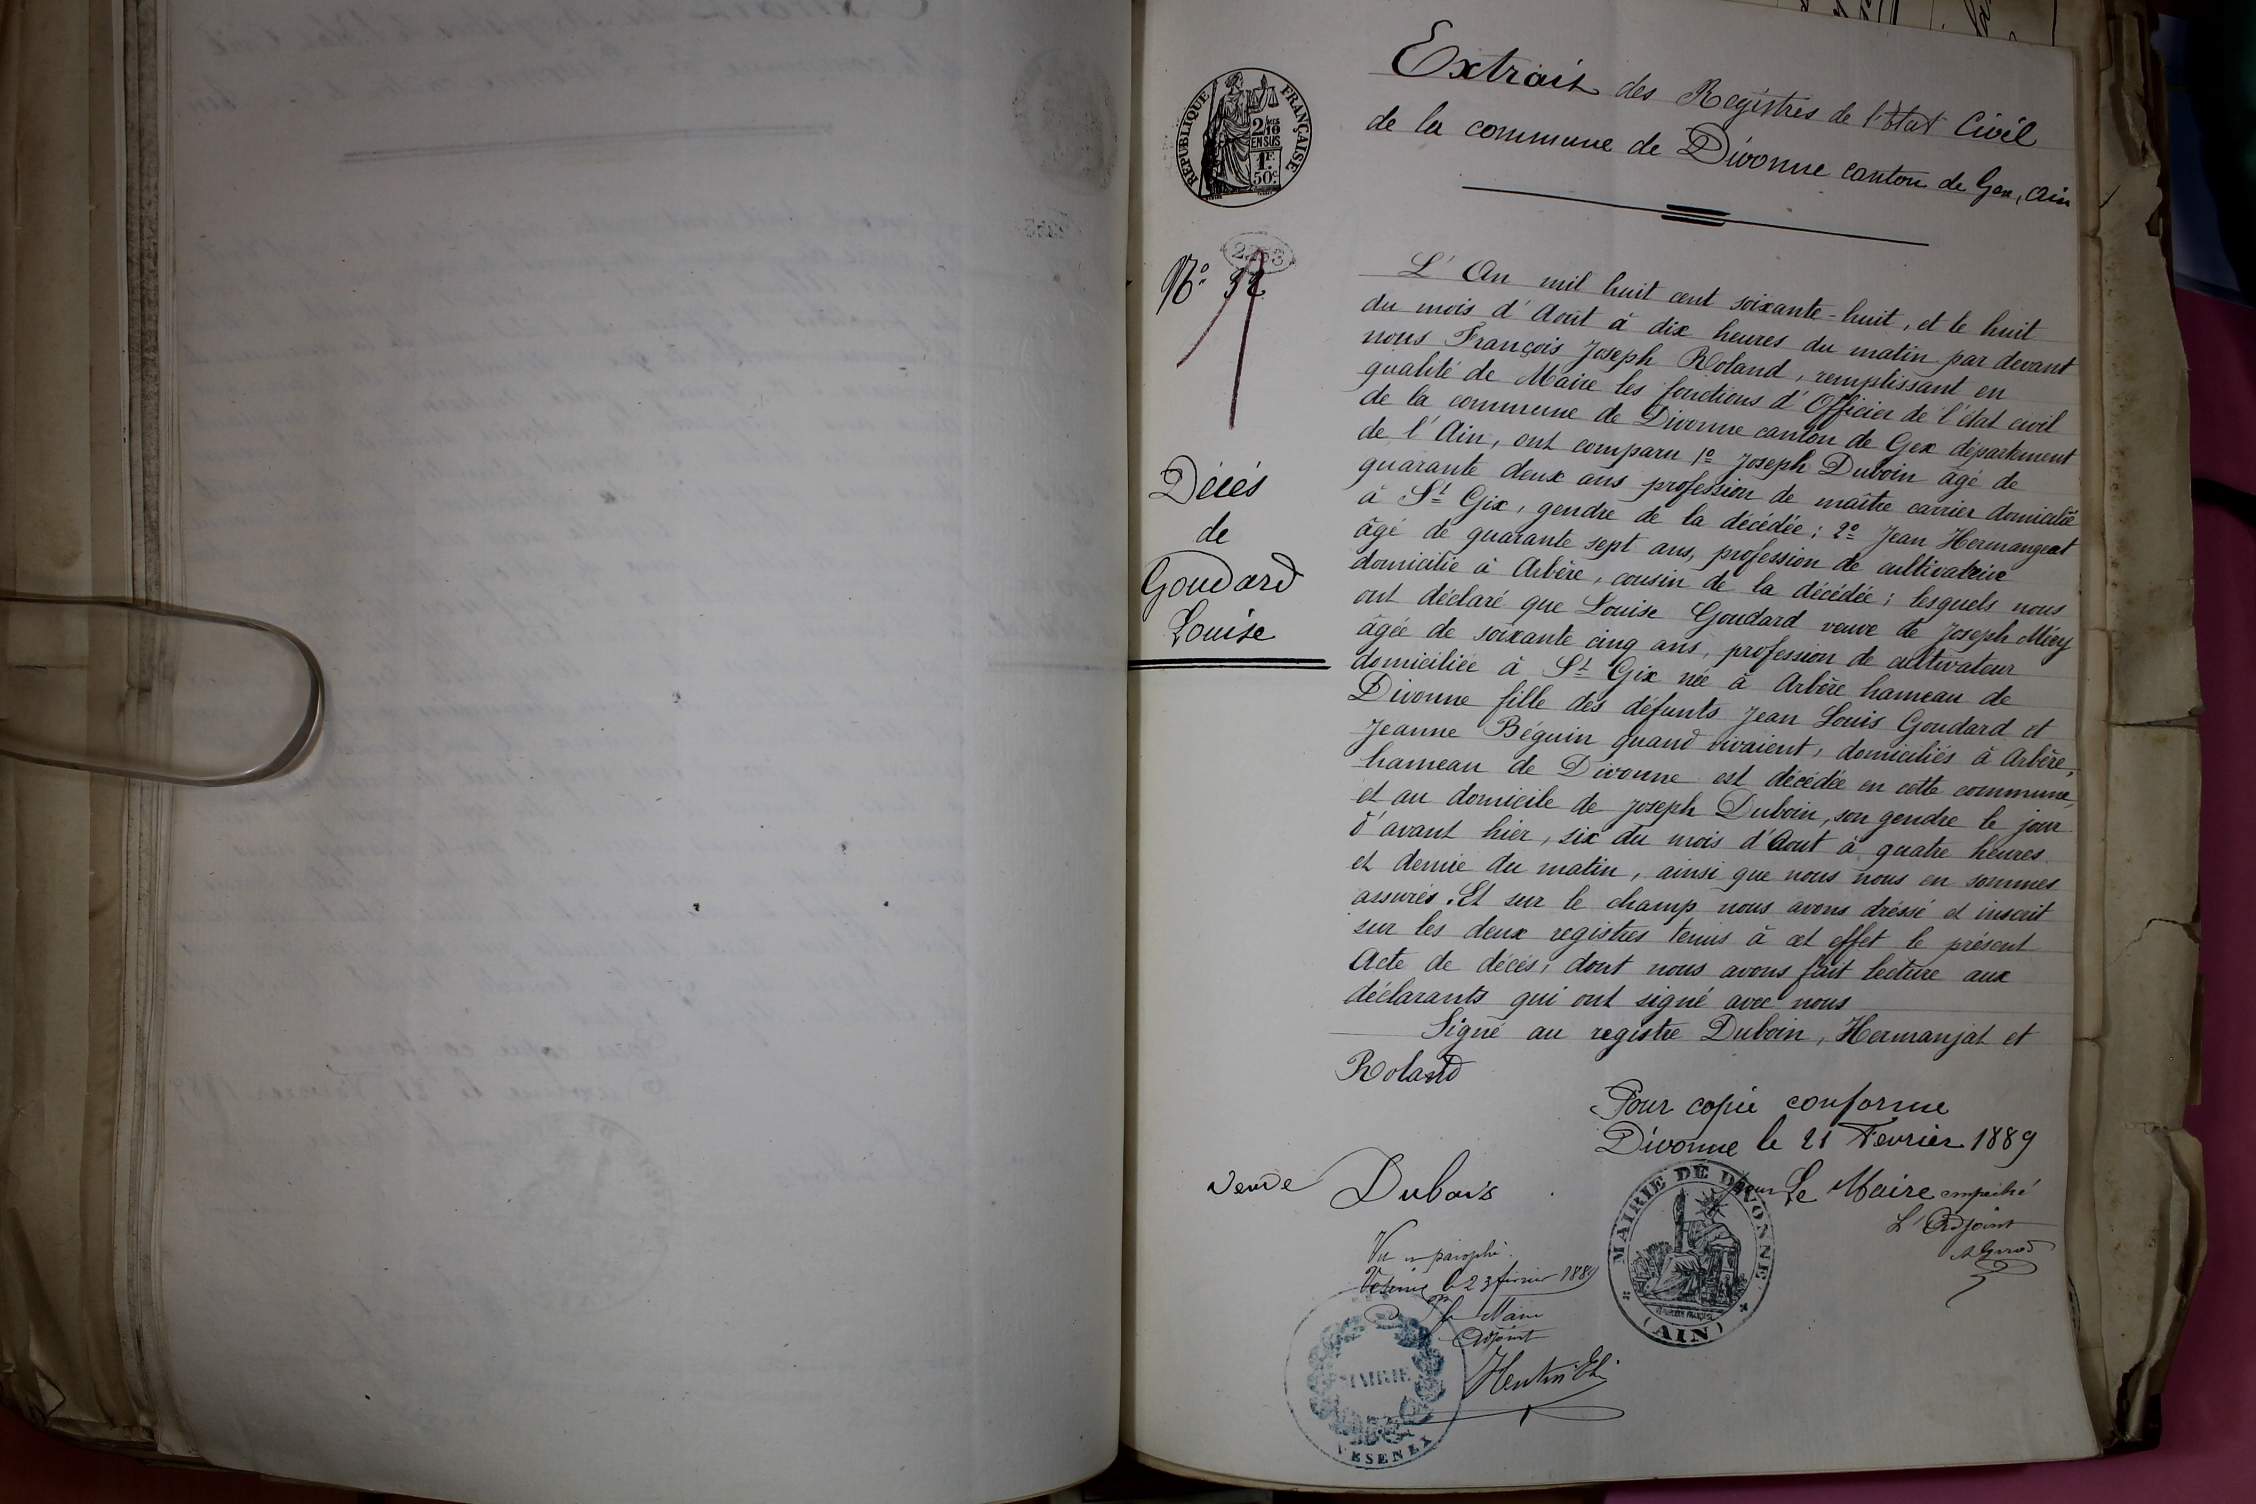 Extrait des Registres de l'Etat Civil
de la commune de Divonne canton de Gex, Ain
RÉPUBLIQUE FRANÇAISE
2/10
EN SUS
1F.
50c.
2253
N° 32
Décés
de
Goudard
Louise
L'An mil huit cent soixante-huit, et le huit
du mois d'Août à dix heures du matin par devant
nous François Joseph Roland, remplissant en
qualité de Maire les fonctions d'Officier de l'état civil
de la commune de Divonne canton de Gex département
de l'Ain, ont comparu 1° Joseph Duboin âgé de
quarante deux ans profession de maître carrier domicilié
à St Gix, gendre de la décédée; 2° Jean Hermangeat
âgé de quarante sept ans, profession de cultivateur
domicilié à Arbère, cousin de la décédée; lesquels nous
ont déclaré que Louise Goudard veuve de Joseph Méry
âgée de soixante cinq ans, profession de cultivateur
domiciliée à St Gix née à Arbère hameau de
Divonne fille des défunts Jean Louis Goudard et
Jeanne Béguin quand vivaient, domiciliés à Arbère,
hameau de Divonne est décédée en cette commune,
et au domicile de Joseph Duboin, son gendre le jour
d'avant hier, six du mois d'Aout à quatre heures
et demie du matin, ainsi que nous nous en sommes
assurés. Et sur le champ nous avons dréssé et inscrit
sur les deux registres tenus à cet effet le présent
Acte de décés, dont nous avons fait lecture aux
déclarants qui ont signé avec nous
Signé au registre Duboin, Hermanjat et
Roland
Pour copie conforme
Divonne le 21 Fevrier 1889
Pour Le Maire empêché
L'Adjoint
MAIRIE DE DIVONNE
(AIN)
veuve Dubois
Vu et paraphé
Vesenex le 23 février 1889
Le Maire
Adjoint
MAIRIE
VESENEX